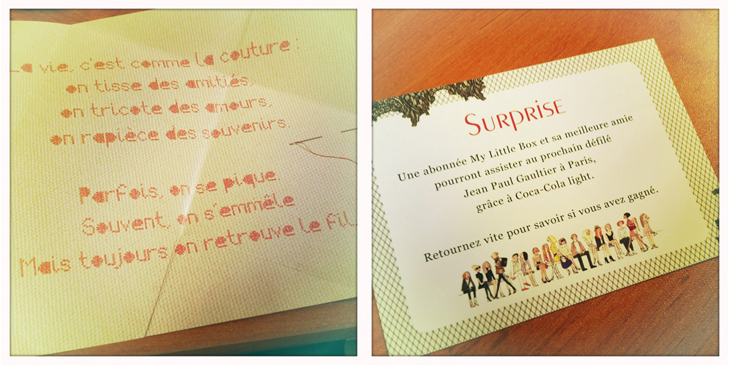 La vie, c'est comme la couture :
on tisse des amitiés,
on tricote des amours,
on rapièce des souvenirs.
Parfois, on se pique.
Souvent, on s'emmêle
Mais toujours on retrouve le fil.
SURPRISE
Une abonnée My Little Box et sa meilleure amie
pourront assister au prochain défilé
Jean Paul Gaultier à Paris,
grâce à Coca-Cola light.
Retournez vite pour savoir si vous avez gagné.